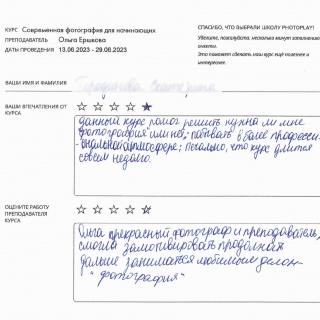 КУРС Современная фотография для начинающих
ПРЕПОДАВАТЕЛЬ Ольга Ершкова
ДАТЫ ПРОВЕДЕНИЯ 13.06.2023 - 29.06.2023
СПАСИБО, ЧТО ВЫБРАЛИ ШКОЛУ PHOTOPLAY!
Уделите, пожалуйста, несколько минут заполнению
анкеты.
Это поможет сделать наш курс ещё полезнее и
интереснее.
ВАШИ ИМЯ И ФАМИЛИЯ
ВАШИ ВПЕЧАТЛЕНИЯ ОТ
КУРСА
данный курс помог решить нужна ли мне
фотография или нет; побывать в более професси-
ональной атмосфере; печально, что курс длится
совсем недолго.
ОЦЕНИТЕ РАБОТУ
ПРЕПОДАВАТЕЛЯ
КУРСА
Ольга прекрасный фотограф и преподаватель,
смогла замотивировать продолжать
дальше заниматься любимым делом
"фотография"